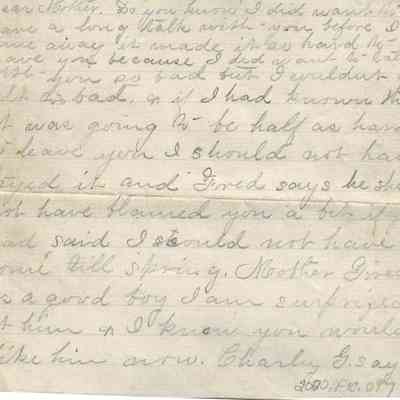 ear Mother. Do you know I did want to
ave a long talk with you before I
ame away it made it so hard to
eave you because I did want to
with you so bad but I couldnt
elt so bad. & if I had known th
t was going to be half as har
leave you I should not ha
and Fred says he sh
not have blamed you a bit if
ad said I should not have
ome till spring. Mother Fred
s a good boy I am surprized
t him & I know you would
like him now. Charley G. say